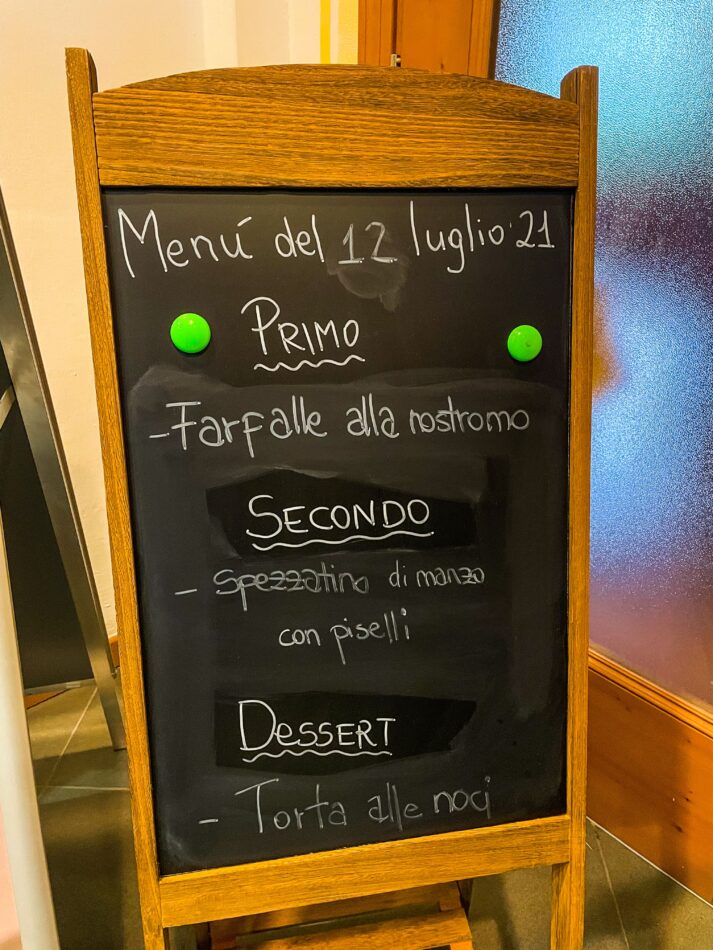 Menú del 12 luglio 21
PRIMO
- Farfalle alla nostromo
SECONDO
- Spezzatino di manzo
con piselli
DESSERT
- Torta alle noci